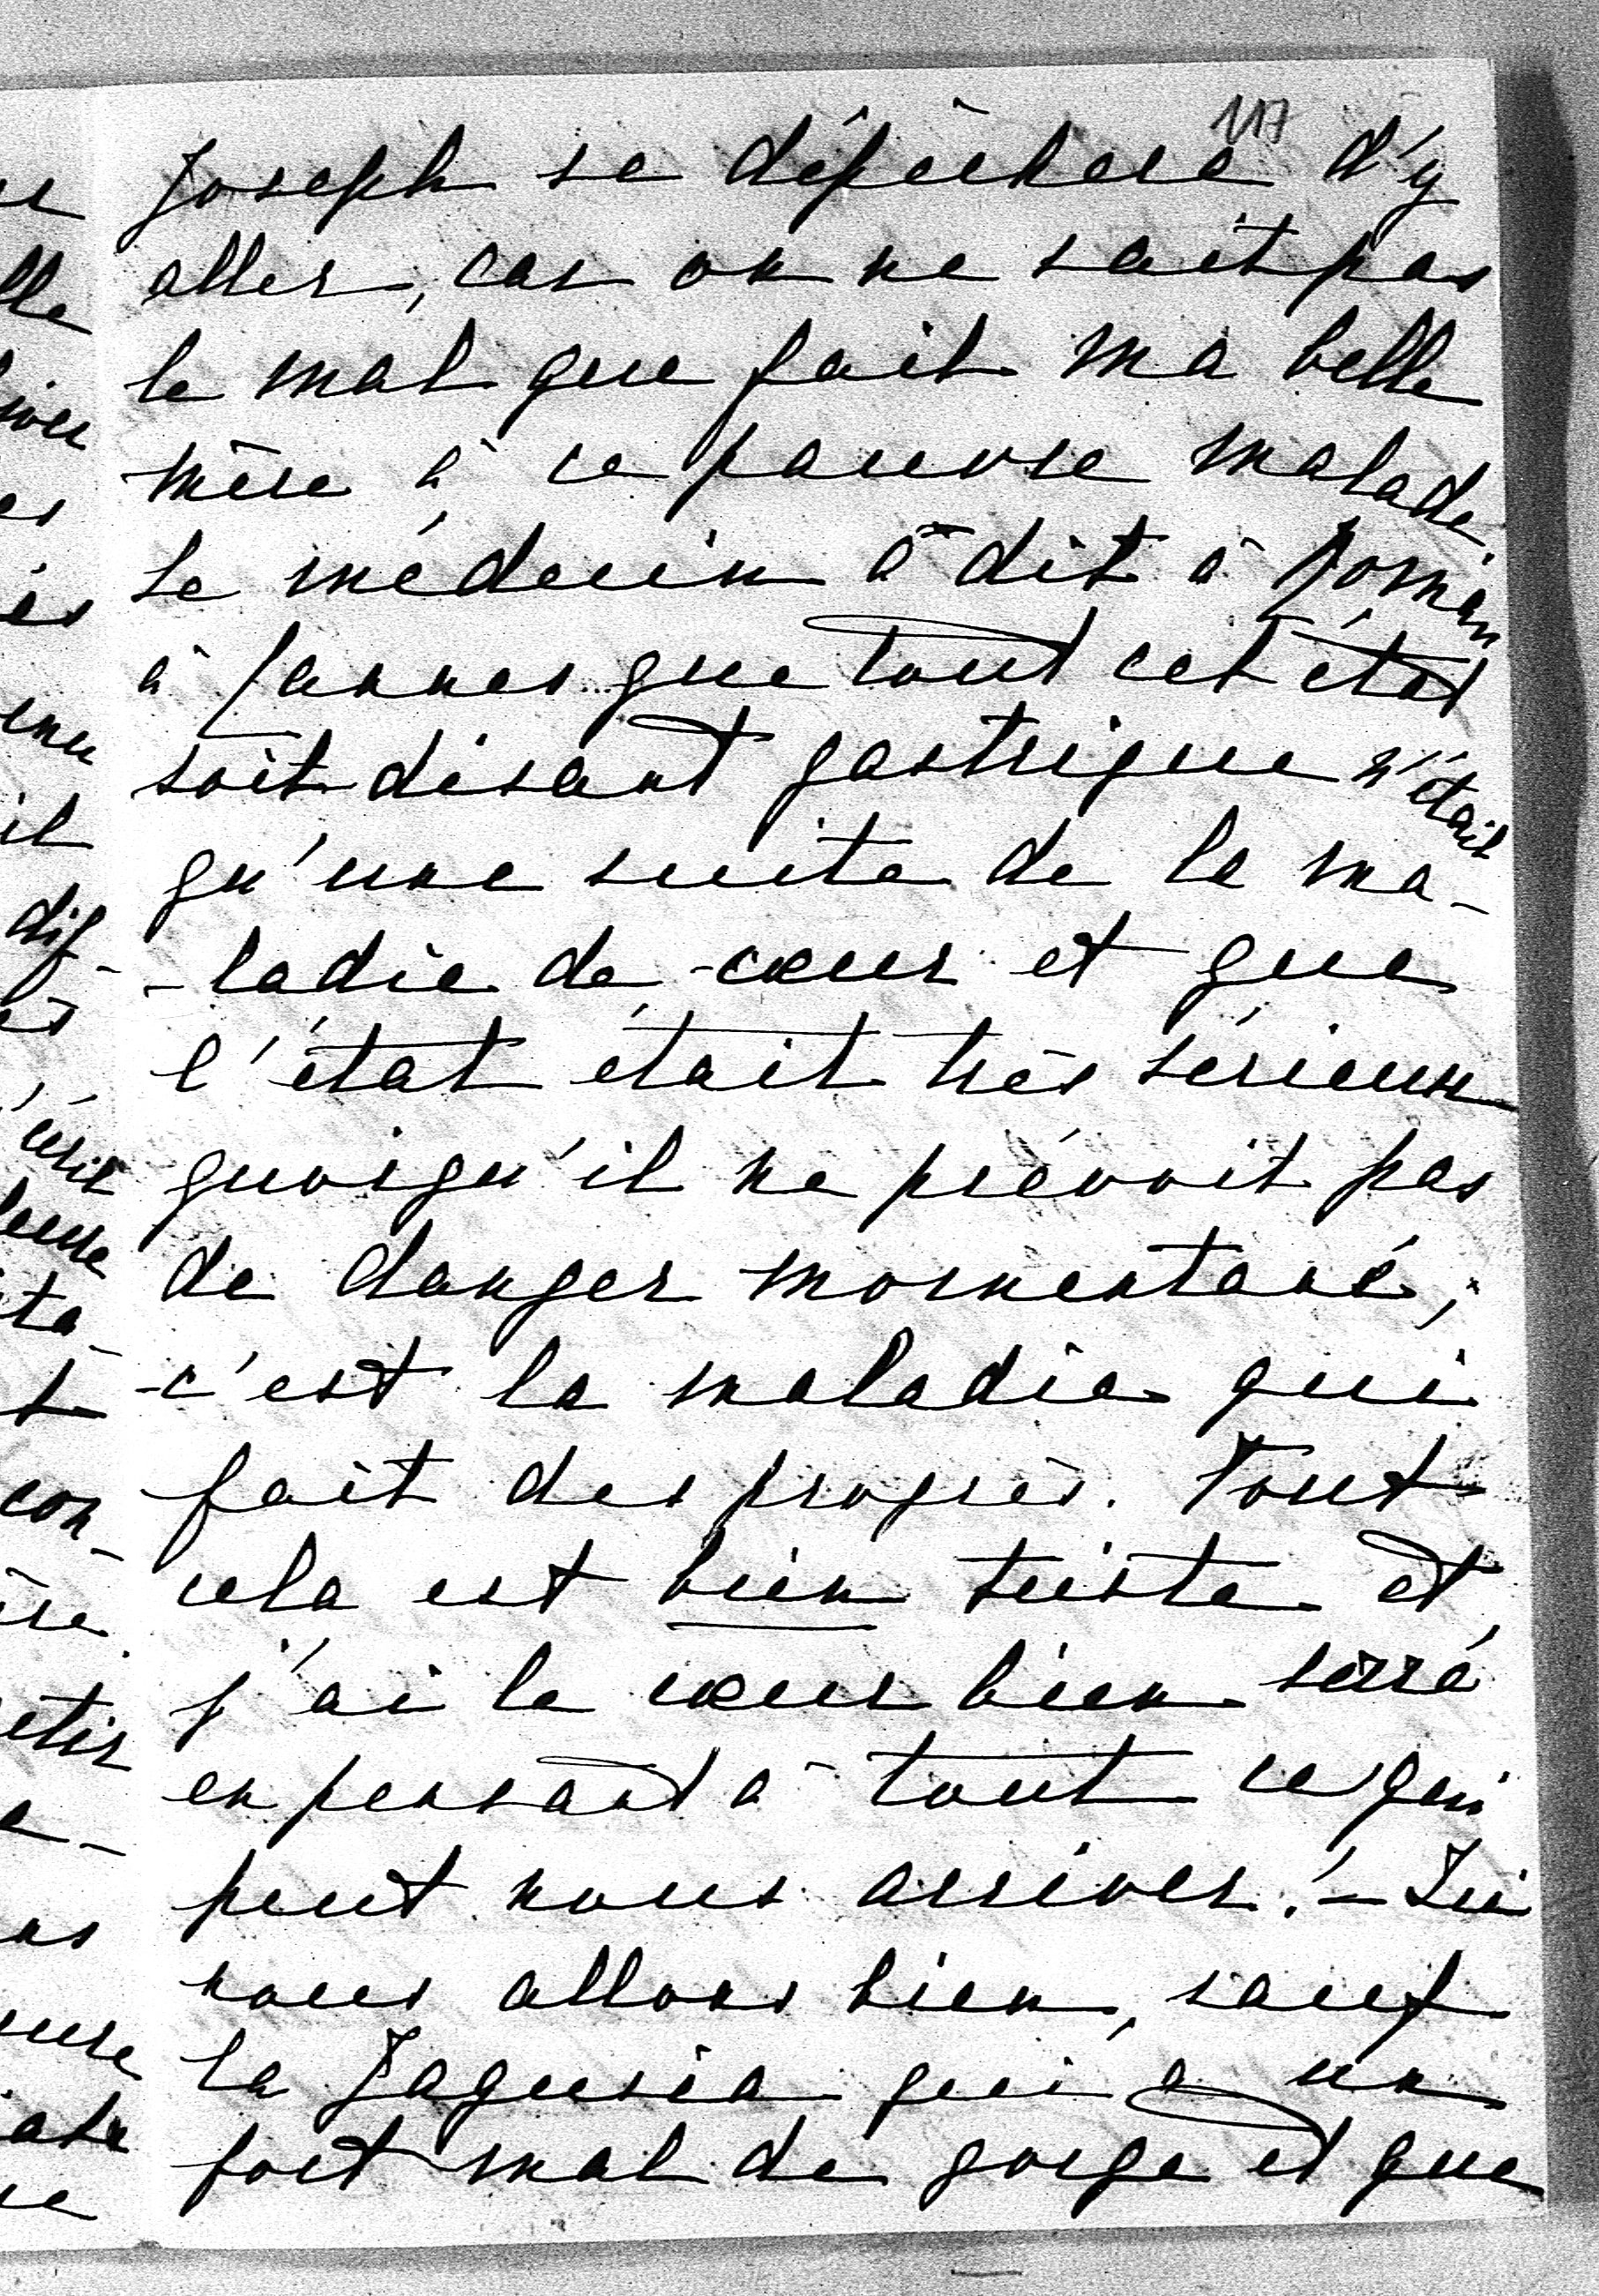 117
Joseph se dépêchera d'y
aller, car on ne sait pas
le mal que fait ma belle
mère à ce pauvre malade.
Le médecin a dit à Roman
à Cannes que tout cet état
soit disant gastrique n'était
qu'une suite de la ma-
-ladie de cœur et que
l'état était très sérieux
quoiqu'il ne prévoit pas
de danger momentané;
c'est la maladie qui
fait des progrès. Tout
cela est bien triste et
j'ai le cœur bien serré
en pensant à tout ce qui
peut nous arriver! – Ici
nous allons bien, sauf
la Jagusia qui a un
fort mal de gorge et que